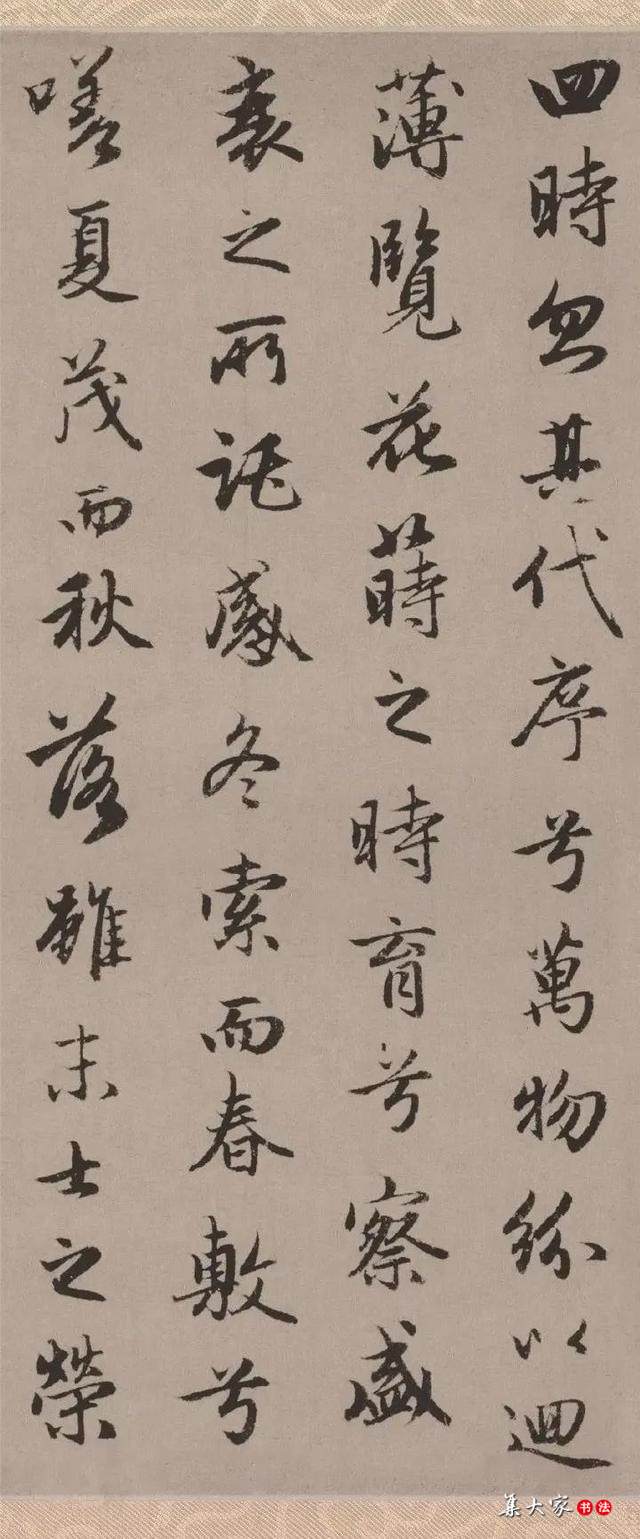 四時忽其代序兮萬物紛以迴
薄覽花蒔之時育兮察盛
衰之所託感冬索而春敷兮
嗟夏茂而秋落雖末士之榮
集大家书法